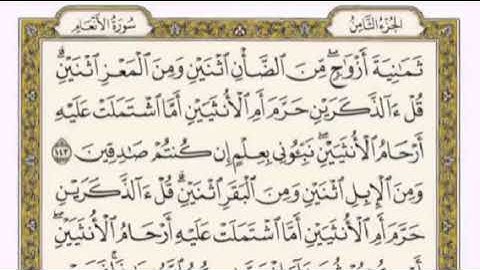 سُورَةُ الأَنْعَامِ
الجُزْءُ الثَّامِنُ
ثَمَٰنِيَةَ أَزْوَٰجٍ ۖ مِّنَ ٱلضَّأْنِ ٱثْنَيْنِ وَمِنَ ٱلْمَعْزِ ٱثْنَيْنِ ۗ
قُلْ ءَآلذَّكَرَيْنِ حَرَّمَ أَمِ ٱلْأُنثَيَيْنِ أَمَّا ٱشْتَمَلَتْ عَلَيْهِ
أَرْحَامُ ٱلْأُنثَيَيْنِ ۖ نَبِّـُٔونِى بِعِلْمٍ إِن كُنتُمْ صَٰدِقِينَ ١٤٣
وَمِنَ ٱلْإِبِلِ ٱثْنَيْنِ وَمِنَ ٱلْبَقَرِ ٱثْنَيْنِ ۗ قُلْ ءَآلذَّكَرَيْنِ
حَرَّمَ أَمِ ٱلْأُنثَيَيْنِ أَمَّا ٱشْتَمَلَتْ عَلَيْهِ أَرْحَامُ ٱلْأُنثَيَيْنِ ۖ